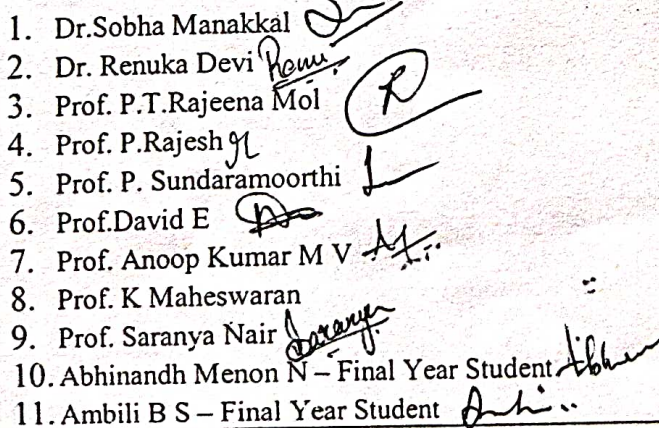 1. Dr.Sobha Manakkal
2. Dr. Renuka Devi Renu
3. Prof. P.T.Rajeena Mol R
4. Prof. P.Rajesh
5. Prof. P. Sundaramoorthi
6. Prof.David E
7. Prof. Anoop Kumar M V
8. Prof. K Maheswaran
9. Prof. Saranya Nair Saranya
10. Abhinandh Menon N – Final Year Student
11. Ambili B S – Final Year Student